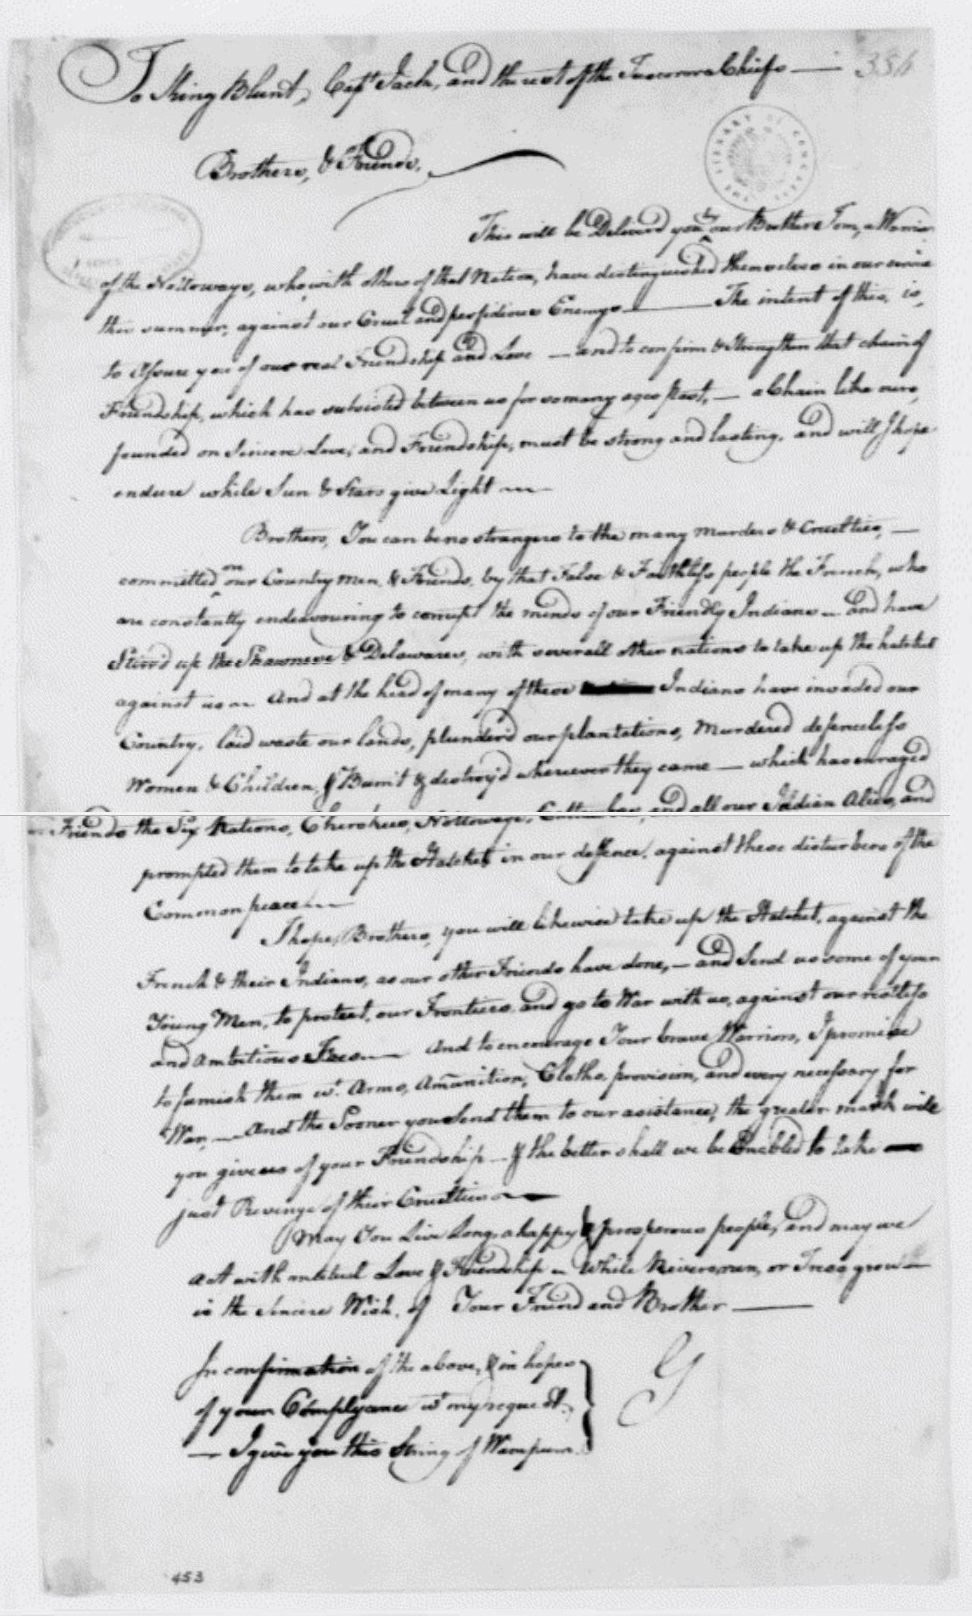 To King Blunt, Capt Jack, and the rest of the Tuscorora Chiefs — 354
Brothers, & Friends,
This will be Deliverd you by our Brother Tom, a Warrior
of the Nottoways, who, with others of that Nation, have distinguished themselves in our service
this summer, against our Cruel and perfidious Enemys — The intent of this, is,
to Assure you of our real Friendship and Love — and to confirm & Strengthen that chain of
Friendship, which has subsisted between us for so many ages past, — a Chain like ours,
founded on Sincere Love, and Friendship, must be strong and lasting, and will I hope
endure while Sun & Stars give Light —
Brothers, You can be no strangers to the many Murders & Cruelties, —
committed on our Country men & Friends, by that False & Faithless people the French, who
are constantly endeavouring to corrupt the minds of our Friendly Indians — and have
Stirr'd up the Shawnese & Delawares, with severall other nations to take up the hatchet
against us — And at the head of many of these Indians have invaded our
Country, laid waste our lands, plunder'd our plantations, Murdered defenceless
Women & Children, & Burnt & destroy'd wherever they came — which has enraged
our Friends the Six Nations, Cherokees, Nottoways, Cattawbas, and all our Indian Alies, and
prompted them to take up the Hatchet in our deffence, against these disturbers of the
Common peace —
I hope, Brothers, you will likewise take up the Hatchet, against the
French & their Indians, as our other Friends have done, — and Send us some of your
Young Men, to protect our Frontiers, and go to War with us, against our restless
and ambitious Foes — And to encourage Your brave Warriors, I promise
to furnish them wt. Arms, Amunition, Cloths, provision, and every necessary for
War, — And the Sooner you Send them to our assistance, the greater mark will
you give us of your Friendship — & the better shall we be Enabled to take
just Revenge of their Cruelties —
May You Live Long, a happy & prosperous people, and may we
act with mutual Love & Friendship — While Rivers run, or Trees grow —
is the sincere Wish, of Your Friend and Brother —
In confirmation of the above, & in hopes
of your Complyance wt my request, G
— I give you this String of Wampum
453